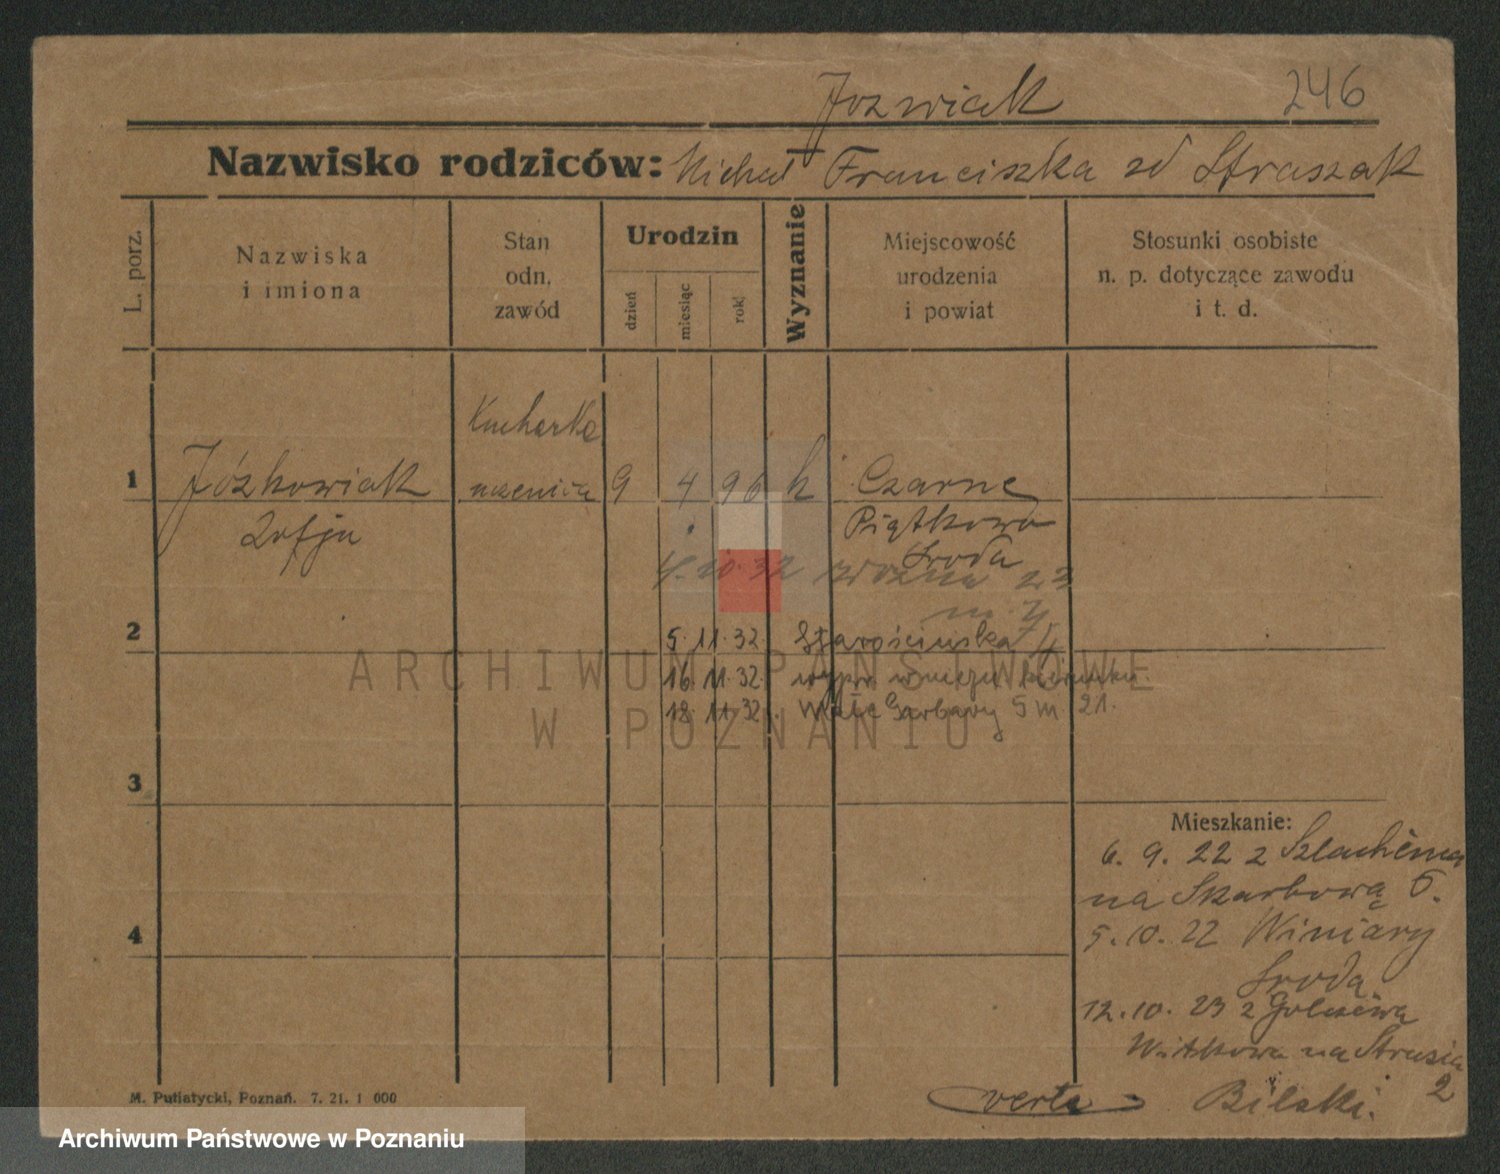 Jozwiak 246
Nazwisko rodziców: Michał Franciszka zd Straszak
L. porz.
Nazwiska
i imiona
Stan
odn.
zawód
Urodzin
dzień
miesiąc
rok
Wyznanie
Miejscowość
urodzenia
i powiat
Stosunki osobiste
n. p. dotyczące zawodu
i t. d.
Kucharka
1 Józkowiak uczenica 9 4 96 k Czarne
Zofja Piątkowo
Środa
4.10.32 23
m. 7
2 5.11.32 Starościńska
16.11.32
18.11.32 Małe Garbary 5 m 21.
ARCHIWUM PAŃSTWOWE
W POZNANIU
3
Mieszkanie:
6. 9. 22 z
na Skarbową 6.
4 5.10.22 Winiary
Środa
12.10.23 z
Witkowa na Strusia
2
verte Bilski.
M. Putiatycki, Poznań. 7. 21. 1 000
Archiwum Państwowe w Poznaniu